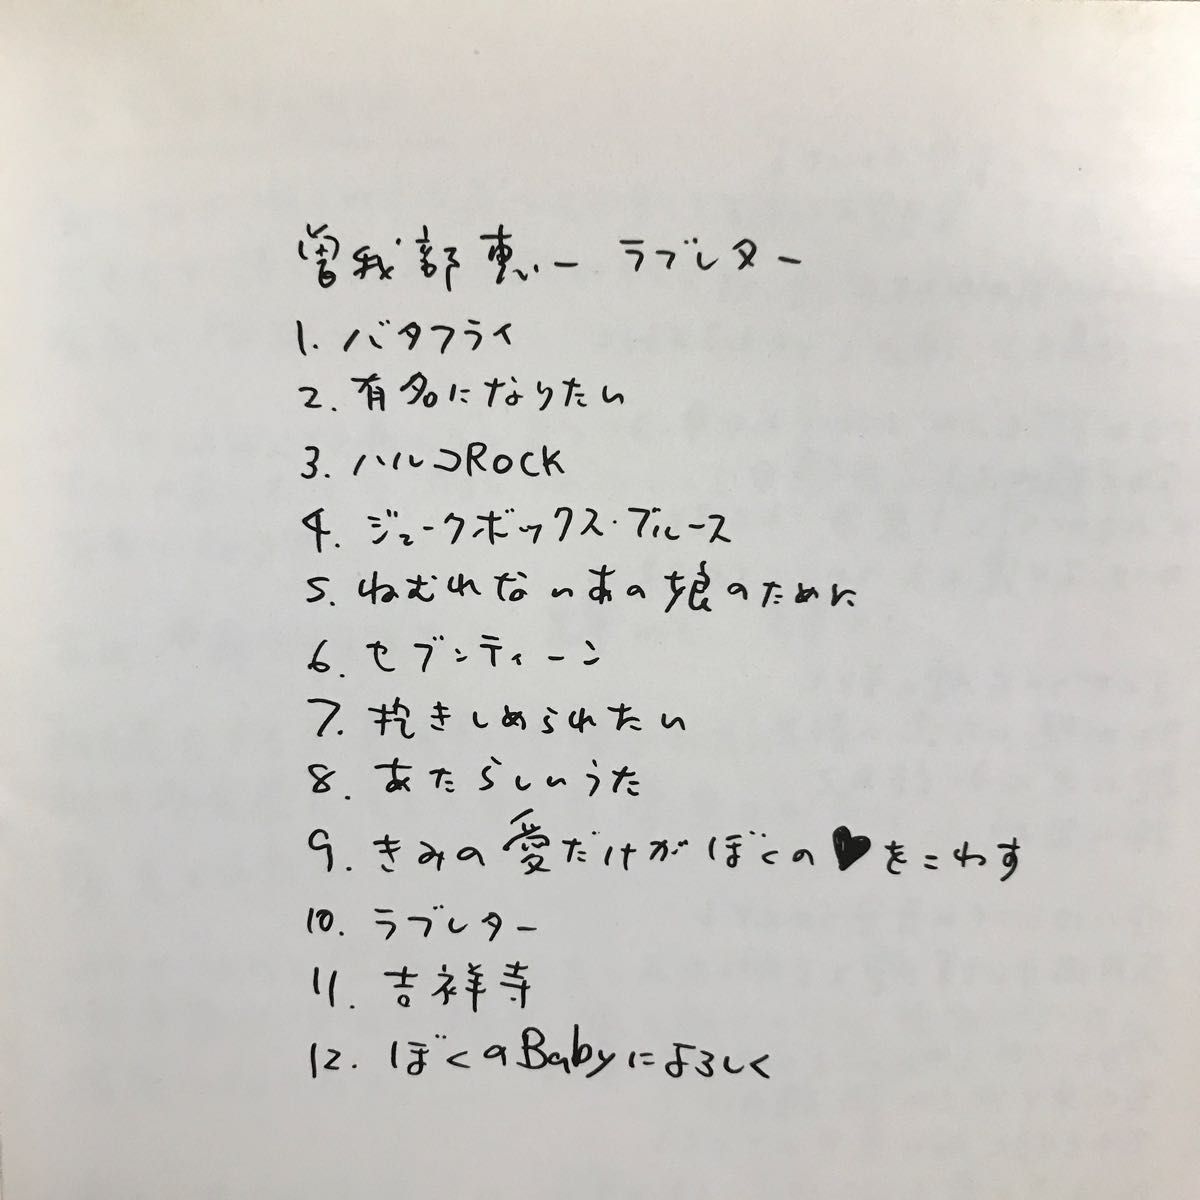 曽我部恵一 ラブレター
1. バタフライ
2. 有名になりたい
3. ハルコROCK
4. ジュークボックス・ブルース
5. ねむれないあの娘のために
6. セブンティーン
7. 抱きしめられたい
8. あたらしいうた
9. きみの愛だけがぼくの♥をこわす
10. ラブレター
11. 吉祥寺
12. ぼくのBabyによろしく